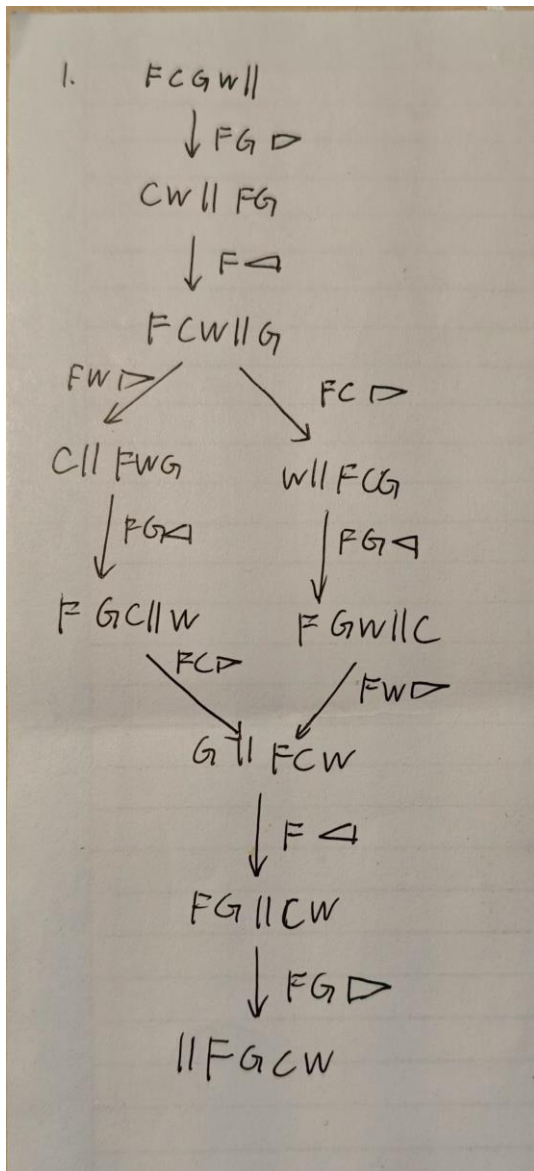 1. FCGW||
↓ FG ▷
CW || FG
↓ F ◁
FCW || G
FW ▷ FC ▷
C || FWG W || FCG
↓ FG ◁ ↓ FG ◁
F GC || W F GW || C
FC ▷ FW ▷
G || FCW
↓ F ◁
FG || CW
↓ FG ▷
|| FGCW